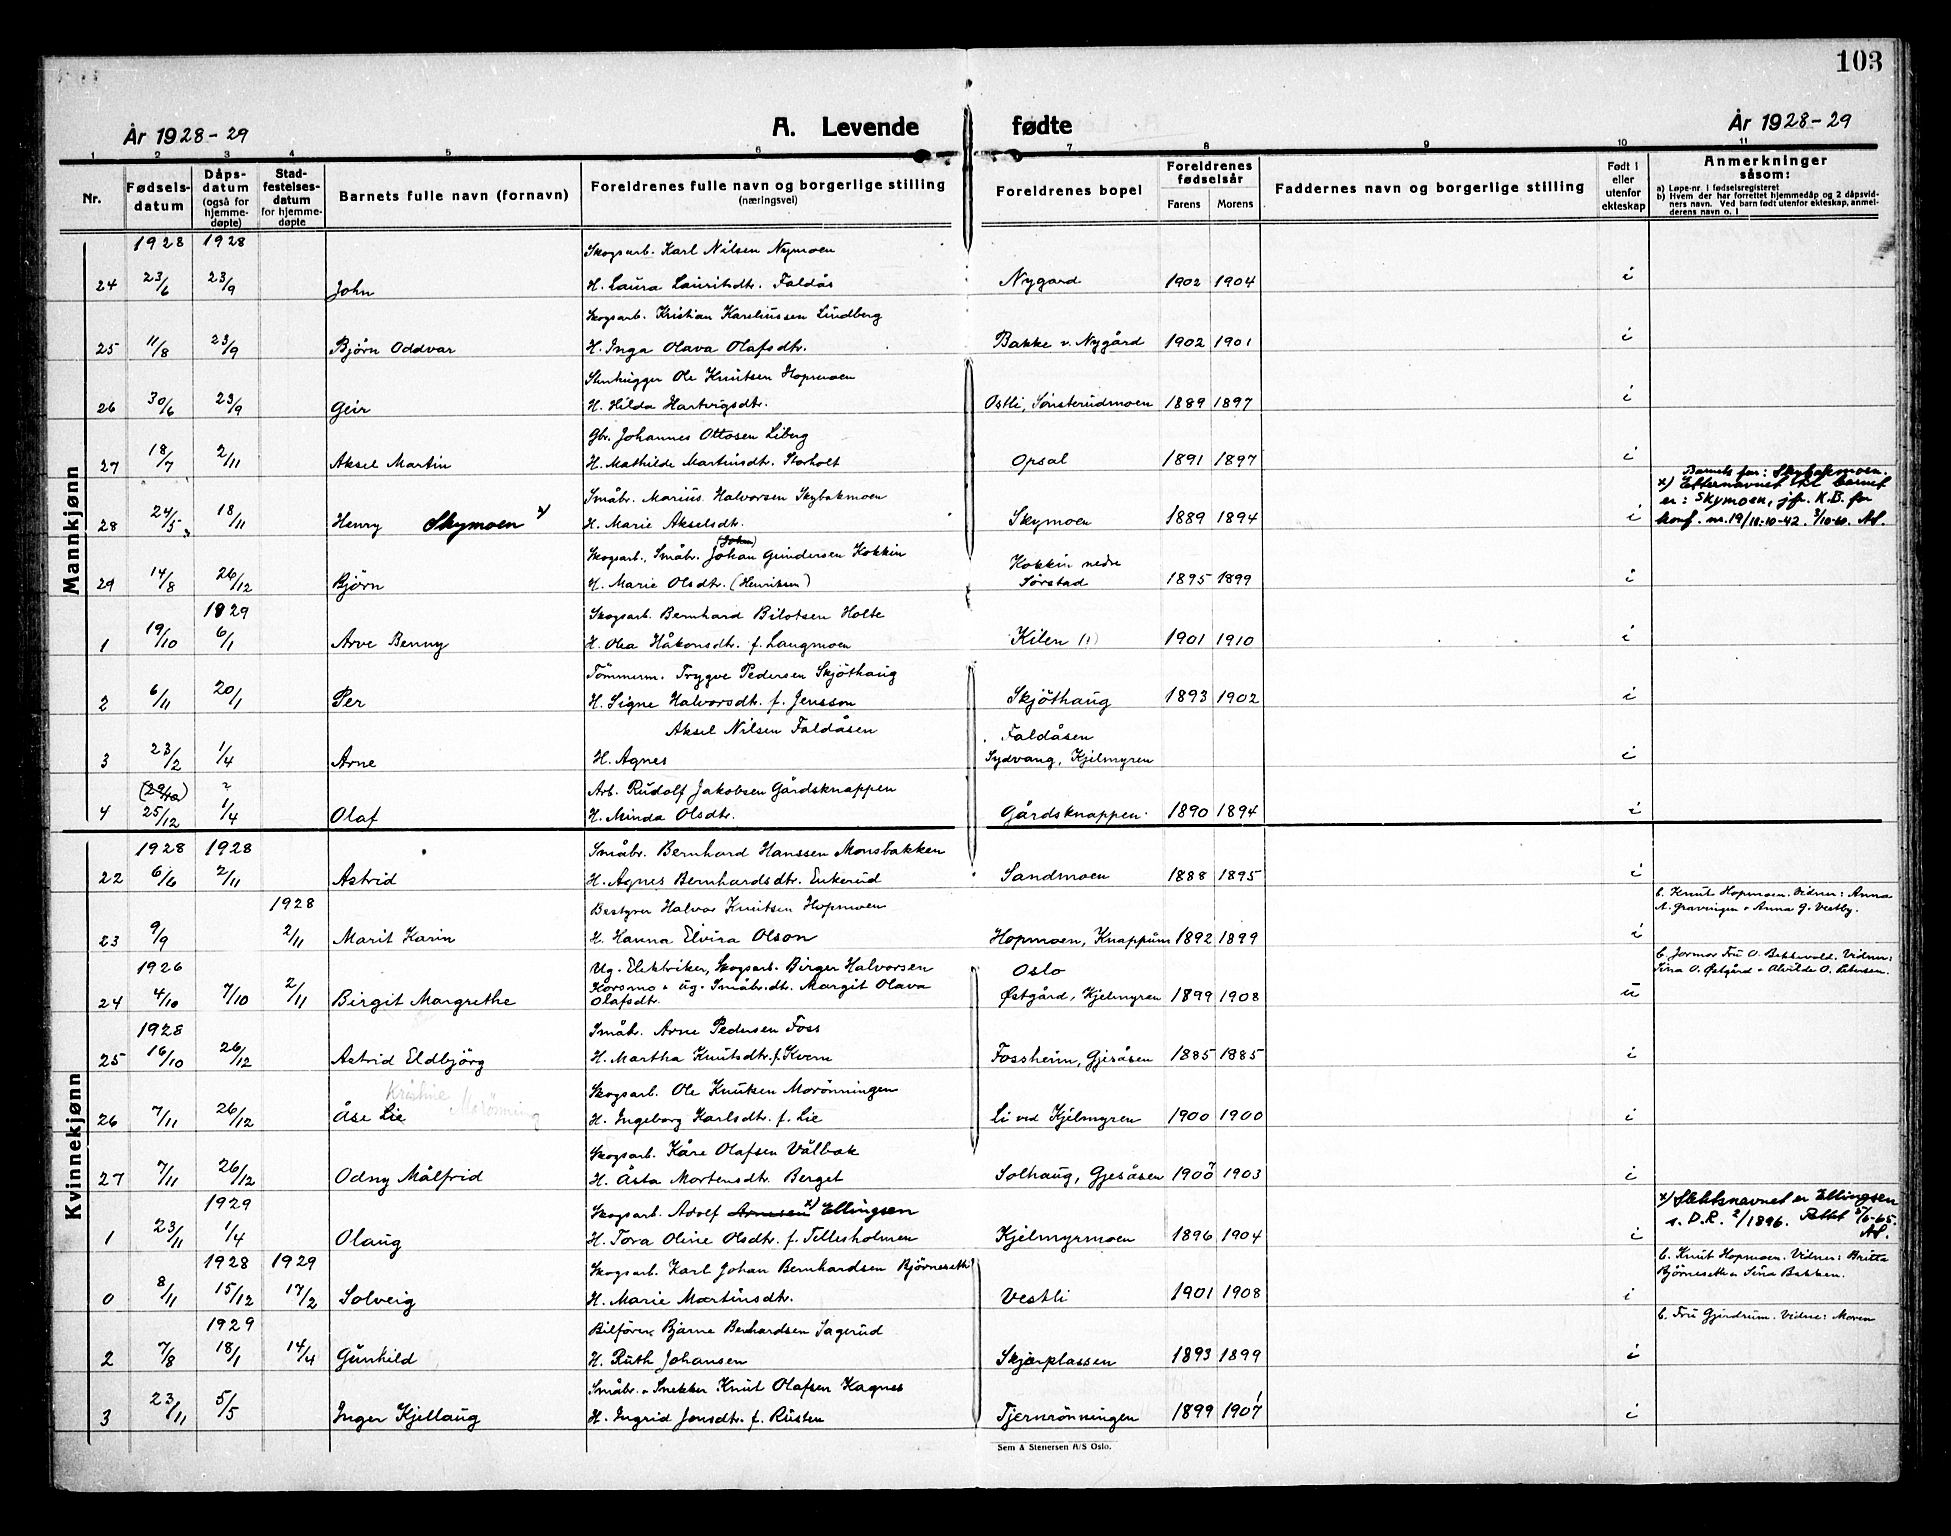 103
År 1928-29 A. Levende fødte År 1928-29
1 2 3 4 5 6 7 8 9 10 11
Nr. Fødsels-datum Dåps-datum (også for hjemme-døpte) Stad-festelses-datum for hjemme-døpte Barnets fulle navn (fornavn) Foreldrenes fulle navn og borgerlige stilling (næringsvei) Foreldrenes bopel Foreldrenes fødselsår Farens Morens Faddernes navn og borgerlige stilling Født i eller utenfor ekteskap Anmerkninger såsom:
a) Løpe-nr. i fødselsregisteret
b) Hvem der har forrettet hjemmedåp og 2 dåpsvidners navn. Ved barn født utenfor ekteskap, anmelderens navn o. l
Mannkjønn
1928 1928 Skogsarb. Karl Nilsen Nymoen
24 23/6 23/9 John H. Laura Lauritsdt. Faldås Nygard 1902 1904 i
Skogsarb. Kristian Kareliussen Lindberg
25 11/8 23/9 Bjørn Oddvar H. Inga Olava Olafsdtr. Bakke v. Nygård 1902 1901 i
Stenhugger Ole Knutsen Hopmoen
26 30/6 23/9 Geir H. Hilda Hartvigsdtr. Ostli, Sønsterudmoen 1889 1897 i
Gbr. Johannes Ottosen Liberg
27 18/7 2/11 Aksel Martin H. Mathilde Martinsdt. Storholt Opsal 1891 1897 i
Barnets far: Skybakmoen.
Småbr. Marius Halvorsen Skybakmoen x) Etternavnet til barnet
er: Skymoen, jfr. K.B. for
28 24/5 18/11 Henry Skymoen x) H. Marie Akselsdt. Skymoen 1889 1894 i konf. nr. 19/11-10-42. 3/10-60. AS.
(John)
Skogsarb. Småbr. Johan Gundersen Kokkin Kokkin nedre
29 14/8 26/12 Bjørn H. Marie Olsdt. (Henriksen) Sørstad 1895 1899 i
1929 Skogsarb. Bernhard Bilotsen Holte
1 19/10 6/1 Arve Benny H. Olea Håkonsdt. f. Langmoen Kilen (!) 1901 1910 i
Tömmerm. Trygve Pedersen Skjöthaug
2 6/11 20/1 Per H. Signe Halvorsdt. f. Jensson Skjöthaug 1893 1902 i
Aksel Nilsen Faldåsen Faldåsen
3 23/2 1/4 Arne H. Agnes Sydvang, Kjelmyren i
(29/10) ? Arb. Rudolf Jakobsen Gårdsknappen
4 25/12 1/4 Olaf H. Minda Olsdtr. Gårdsknappen 1890 1894 i
Kvinnekjønn
1928 1928 Småbr. Bernhard Hanssen Monsbakken
22 6/6 2/11 Astrid H. Agnes Bernhardsdtr. Enkerud Sandmoen 1888 1895 i
1928 Bestyrer Halvor Knutsen Hopmoen b. Knut Hopmoen. Vidner: Anna
A. Gravingen + Anna G. Vestby.
23 9/9 2/11 Marit Karin H. Hanna Elvira Olson Hopmoen, Knappum 1892 1899 i
1926 Ug. Elektriker, Skogsarb. Birger Halvorsen Oslo b. Jormor Fru O. Vidner:
Korsmo + ug. Småbr.dt. Margit Olava Tina O. Østgård + Alvilde O. Petersen.
24 4/10 7/10 2/11 Birgit Margrethe Olafsdtr. Østgård, Kjelmyren 1899 1908 u
1928 Småbr. Arne Pedersen Foss
25 16/10 26/12 Astrid Eldbjörg H. Martha Knutsdtr. f. Kvern Fossheim, Gjesåsen 1885 1885 i
Kristine Morönning Skogsarb. Ole Knutsen Morönningen
26 7/11 26/12 Åse Lie H. Ingeborg Karlsdtr. f. Lie Li ved Kjelmyren 1900 1900 i
Skogsarb. Kåre Olafsen Vålbak
27 7/11 26/12 Odny Målfrid H. Åsta Mortensdtr. Berget Solhaug, Gjesåsen 1900 7 1903 i
1929 Skogsarb. Adolf Arnesen x) Ellingsen x) Slektsnavnet er Ellingsen
s. D.R. 2/1896. Rettet 5/6-65.
1 23/11 1/4 Olaug H. Tora Oline Olsdtr. f. Tellesholmen Kjelmyrmoen 1896 1904 i AS.
1928 1929 Skogsarb. Karl Johan Bernhardsen Björneseth b. Knut Hopmoen. Vidner: Britta
Björneseth + Tina Bakken.
0 8/11 15/12 17/2 Solveig H. Marie Martinsdtr. Vestli 1901 1908 i
1929 Bilförer Bjarne Bernhardsen Sagerud b. Fru Gjerdrum. Vidne: Moren
2 7/8 18/1 14/4 Gunhild H. Ruth Johansen Skjærplassen 1893 1899 i
Småbr. + Snekker Knut Olafsen Hagnes
3 23/11 5/5 Inger Kjellaug H. Ingrid Jonsdtr. f. Rusten Tjernrönningen 1899 1907 1 i
Sem & Stenersen A/S Oslo.